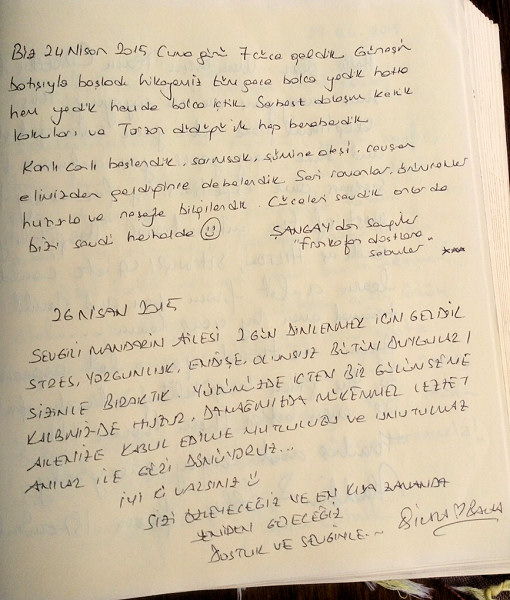 Biz 24 Nisan 2015 Cuma günü 7 cüce geldik Güneşin
batışıyla başladı hikayemiz tüm gece bolca yedik hatta
hem yedik hemde bolca içtik Serbest dolaşım keklik
kokuları ve Tarzan düdüğü ile hep beraberdik
Kanlı canlı beslendik, sarımsak, şömine ateşi,
elimizden geldiğince debelendik Sarı
huzurla ve neşeyle bilgilendik. Cüceleri sevdik onlarda
bizi sevdi herhalde ☺
ŞANGAY'dan Sevgiler
"Frankofon dostlara
sabunlar" ***
26 NİSAN 2015
SEVGİLİ MANDARİN AİLESİ 2 GÜN DİNLENMEK İÇİN GELDİK
STRES, YORGUNLUK, ENDİŞE, OLUMSUZ BÜTÜN DUYGULARI
SİZİNLE BIRAKTIK. YÜZÜMÜZDE İÇTEN BİR GÜLÜMSEME
KALBİMİZDE HUZUR, DAMAĞIMIZDA MÜKEMMEL LEZZET
AİLENİZE KABUL EDİLME MUTLULUĞU VE UNUTULMAZ
ANILAR İLE GERİ DÖNÜYORUZ...
İYİ Kİ VARSINIZ ☺
SİZİ ÖZLEYECEĞİZ VE EN KISA ZAMANDA
YENİDEN GELECEĞİZ
DOSTLUK VE SEVGİNİZLE..